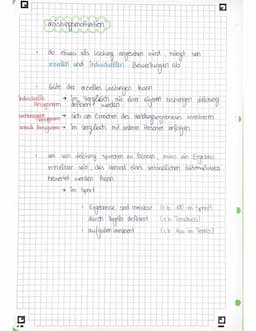 Leistungsmotivation
• Ob etwas als Leistung angesehen wird, hängt von
sozialen und individuellen Bewertungen ab
Güte der erzielten Leistungen kann
individuelle Bezugsnorm → im Vergleich mit der eigenen bisherigen Leistung
definiert werden
→ sich am Erreichen des Handlungsergebnisses orientieren
soziale Bezugsnorm → im Vergleich mit anderen Personen erfolgen
• um von Leistung sprechen zu können, muss ein Ergebnis
erzielbar sein, das anhand eines verbindlichen Gütemaßstabs
bewertet werden kann
→ im Sport
• Ergebnisse sind messbar (z.b. 100-m Sprint)
durch Regeln definiert (z.b. Tennis)
• Aufgaben